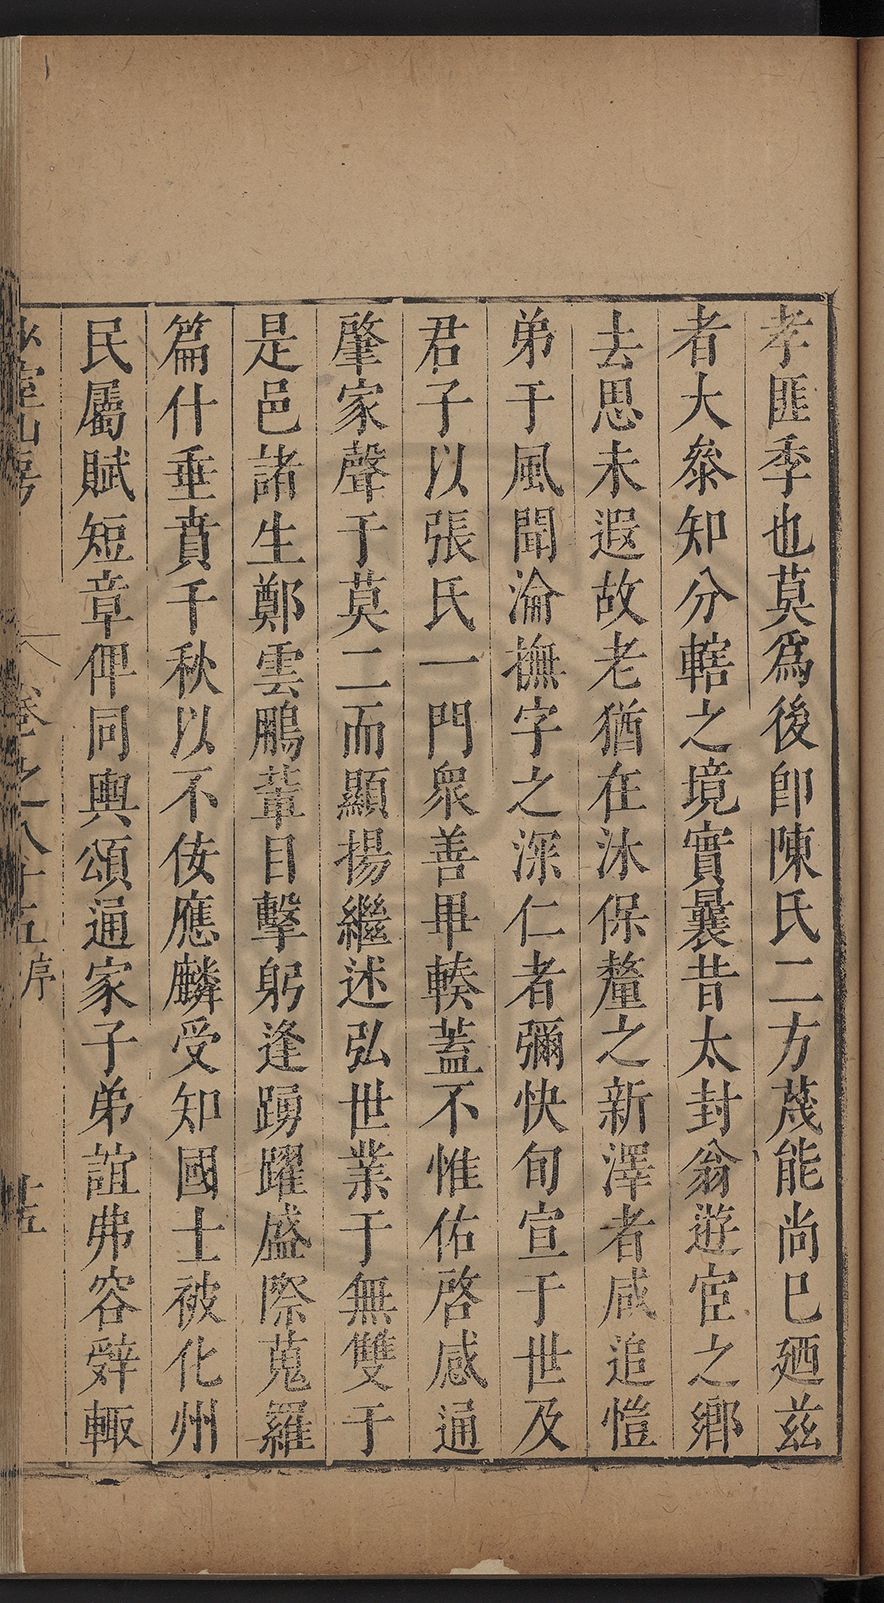 孝匪季也莫爲後卽陳氏二方蔑能尚巳廼兹
者大叅知分轄之境實曩昔太封翁遊宦之鄉
去思未遐故老猶在沐保釐之新澤者咸追愷
弟于風聞淪撫字之深仁者彌快旬宣于世及
君子以張氏一門衆善畢輳蓋不惟佑啓感通
肇家聲于莫二而顯揚繼述弘世業于無雙于
是邑諸生鄭雲鵬輩目擊躬逢踴躍盛際蒐羅
篇什垂賁千秋以不佞應麟受知國士被化州
民屬賦短章俾同輿頌通家子弟誼弗容辭輙
少室山房 卷之八十五序 十五